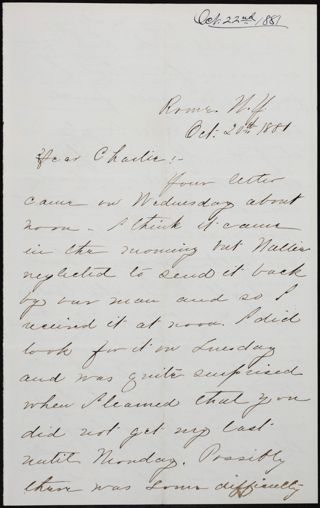 Oct. 22nd/1881
Rome N.Y.
Oct. 20th 1881
Dear Charlie:-
Your letter
came on Wednesday about
noon - I think it came
in the morning but
neglected to send it back
by our man and so I
received it at noon. I did
look for it on Tuesday
and was quite surprised
when I learned that you
did not get my last
until Monday. Possibly
there was some difficulty